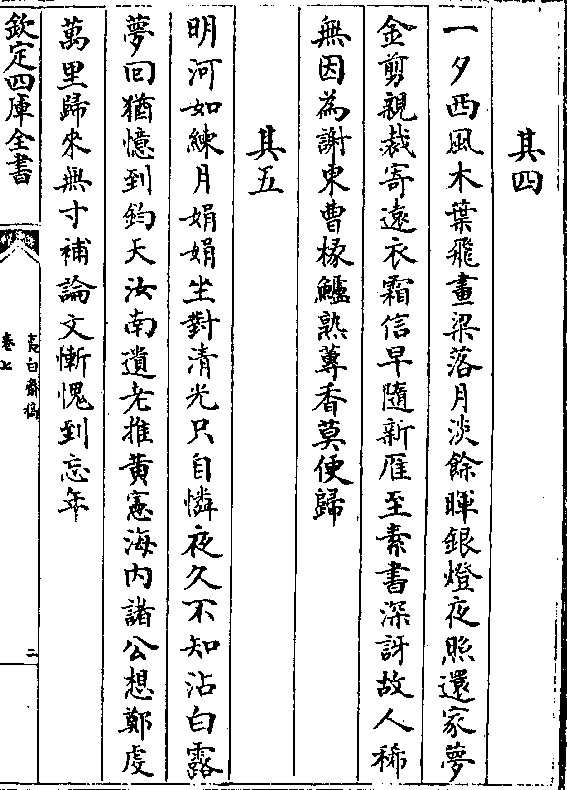 其四
一夕西風木葉飛畫梁落月淡餘暉銀燈夜照還家夢
金剪親裁寄遠衣霜信早隨新雁至素書深訝故人稀
無因為謝東曹椽鱸熟蓴香莫便歸
其五
明河如練月娟娟坐對清光只自憐夜久不知沾白露
夢回猶憶到鈞天汝南遺老推黃憲海内諸公想鄭虔
萬里歸來無寸補論文慚愧到忘年
欽定四庫全書
卷七
二